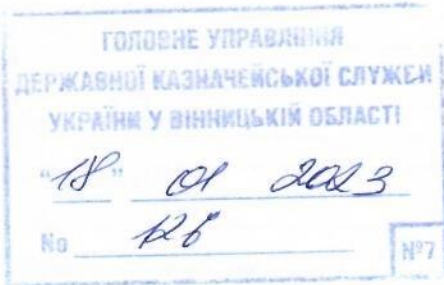 ГОЛОВНЕ УПРАВЛІННЯ
ДЕРЖАВНОЇ КАЗНАЧЕЙСЬКОЇ СЛУЖБИ
УКРАЇНИ У ВІННИЦЬКІЙ ОБЛАСТІ
"18" 01 2023
№
№7